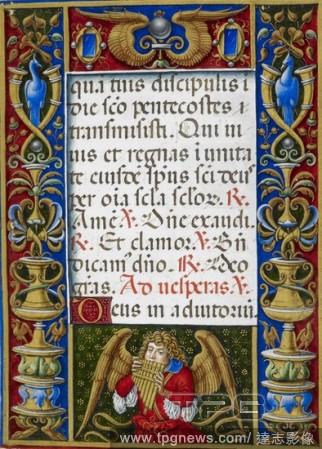 qua tuis discipulis i
die sc̄o pentecostes t
ransmisisti. Qui vi
vis et regnas i unita
te eiusdē sp̄us sci deus
per oīa scl̄a scl̄oꝝ. ℟.
Amē ℣. Dn̄e exaudi
℟. Et clamor. ℣. Bn̄
dicam⁹ dn̄o. ℟. Deo
grās. Ad vesperas ℣.
Deus in adiutoriū.
www.tpgnews.com/ 達志影像